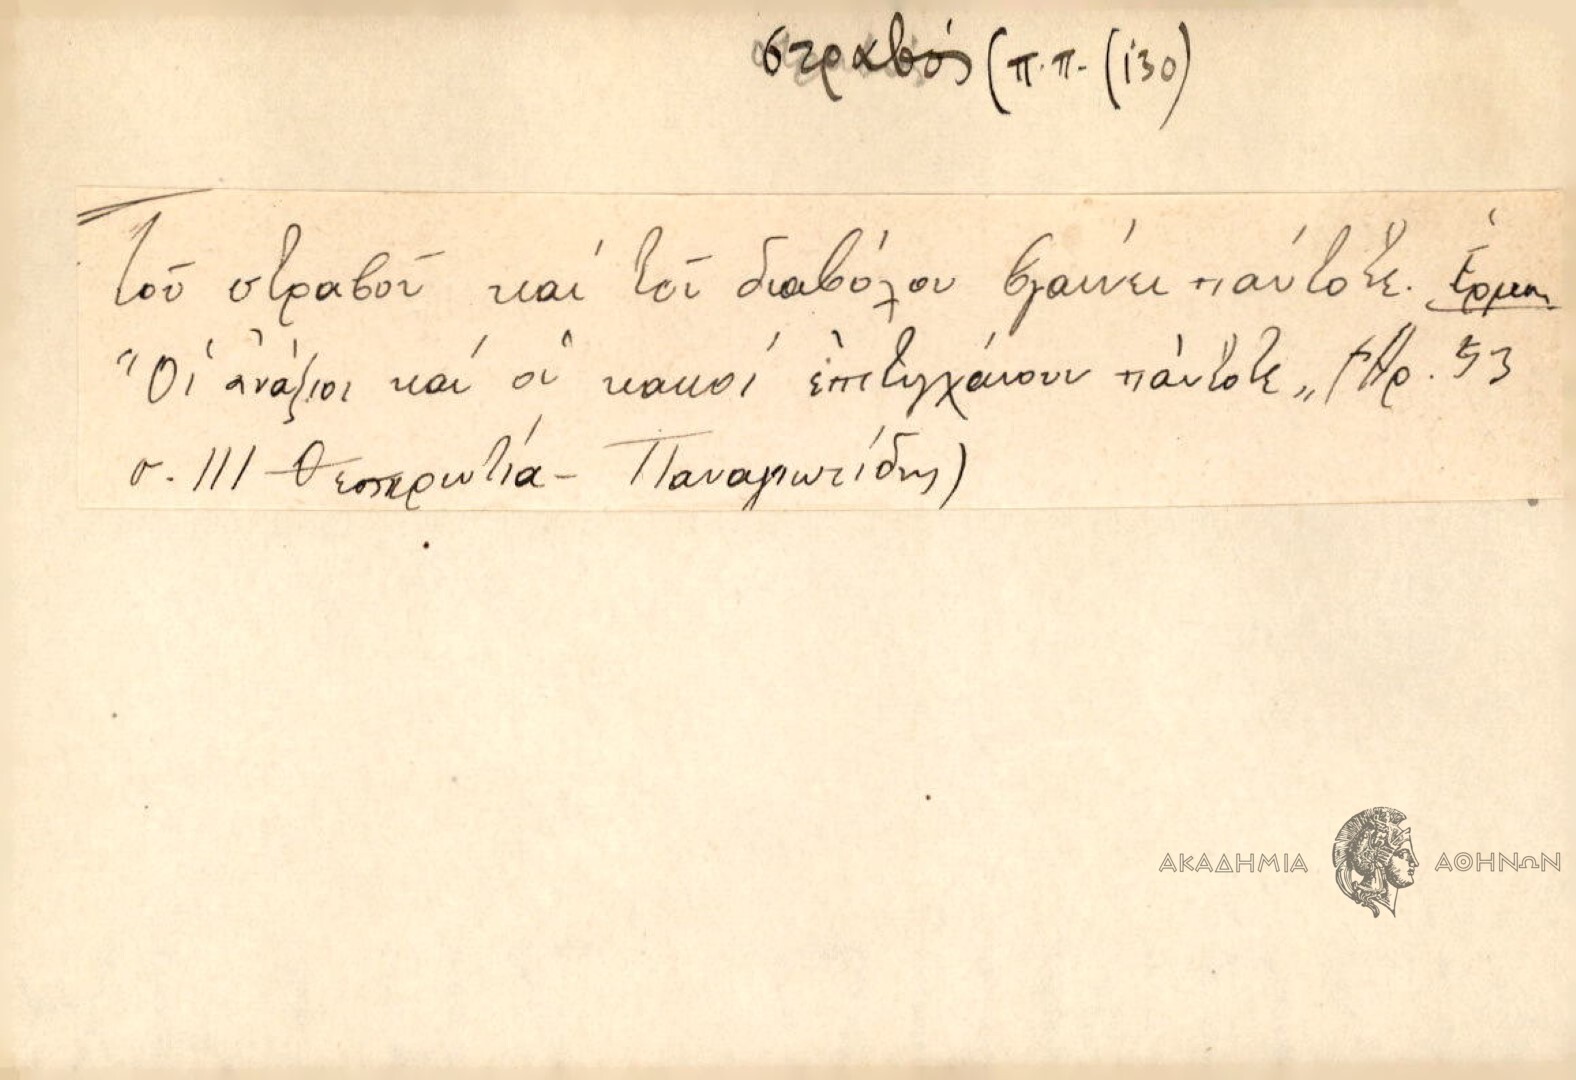 στραβός (π.π. (130)
Τοῦ στραβοῦ καί τοῦ διαβόλου βγαίνει πάντοτε. Ἑρμ.
"Οἱ ἀνάξιοι καί οἱ κακοί ἐπιτυγχάνουν πάντοτε„ (Ἀρ. 53
σ. 111 Θεσπρωτία - Παναγιωτίδης)
ΑΚΑΔΗΜΙΑ ΑΘΗΝΩΝ